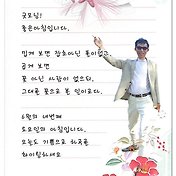 굿모닝!
좋은아침입니다.
밉게 보면 잡초아닌 풀이없고,
곱게 보면
꽃 아닌 사람이 없으되,
그대를 꽃으로 볼 일이로다.
6월의 네번째
토요일의 아침입니다.
오늘도 기쁨으로 하루를
화이팅하세요